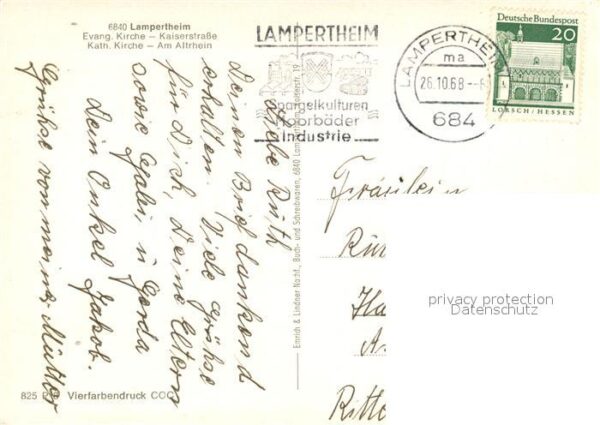 6840 Lampertheim
Evang. Kirche – Kaiserstraße
Kath. Kirche – Am Altrhein
LAMPERTHEIM
Spargelkulturen
Moorbäder
Industrie
LAMPERTHEIM
ma
26.10.68
684
Deutsche Bundespost
20
LORSCH/HESSEN
Liebe Ruth
Deinen Brief dankend
erhalten. Viele Grüße
für Dich, Deine Eltern
sowie Gabi u Gerda
Dein Onkel Jakob.
Grüße von meine Mutter
Emrich & Lindner Nachf., Buch- und Schreibwaren, 6840 Lampertheim
Fräulein
privacy protection
Datenschutz
825
Vierfarbendruck